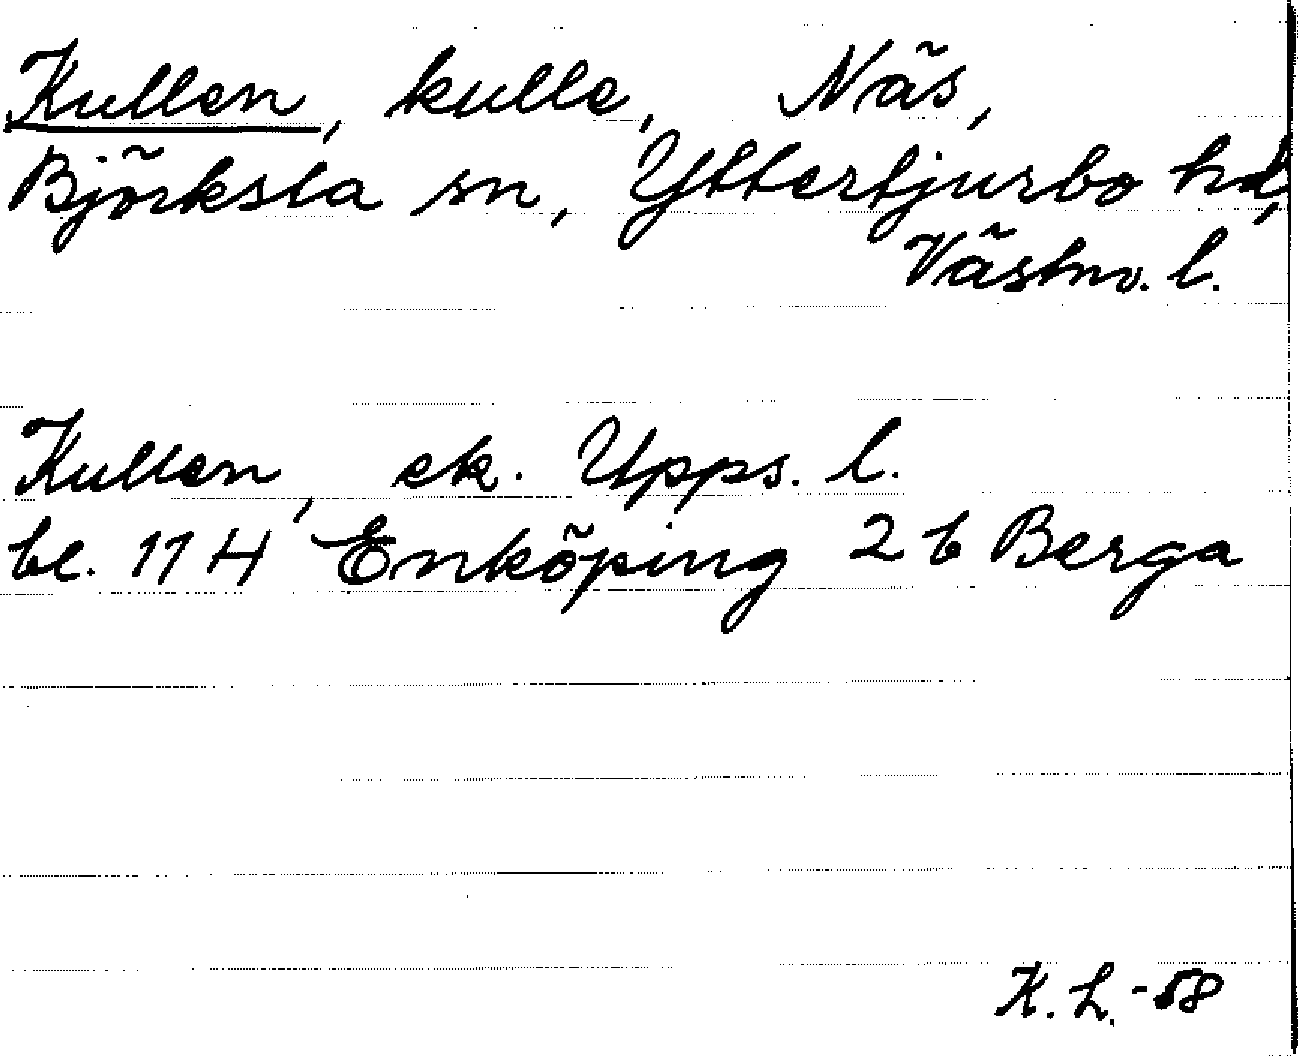 Kullen, kulle, Näs,
Björksta sn, Yttertjurbo hd,
Västm. l.
Kullen, ek. Upps. l.
bl. 11 H Enköping 2 b Berga
K. L. -58